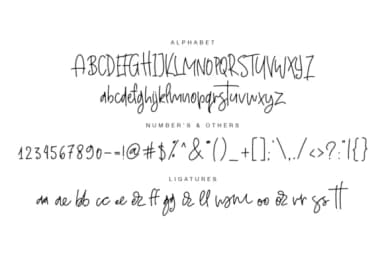 ALPHABET
ABCDEFGHIJKLMNOPQRSTUVWXYZ
abcdefghijklmnopqrstuvwxyz
NUMBER'S & OTHERS
1234567890--=!@#$%^&*()_+[];'\,./<>?:"|{}
LIGATURES
aa ae bb cc ee ff gg ll oo rr ss tt